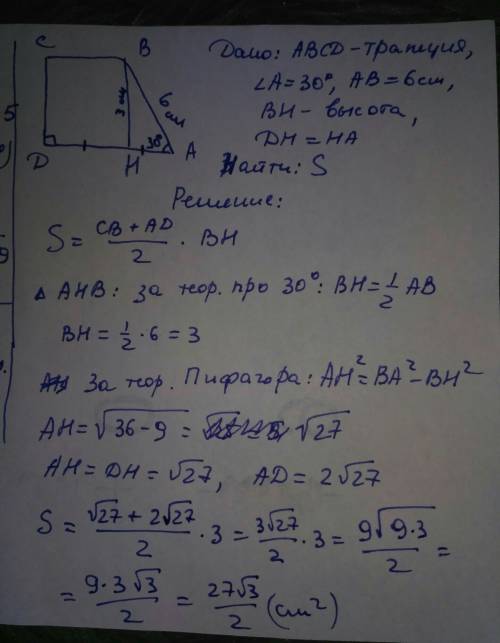 C B
Дано: ABCD – трапеция,
∠A = 30°, AB = 6cm,
3 см 6 см
BH – высота,
5
DH = HA
30°
D H A
Найти: S
Решение:
S = (CB + AD)/2 · BH
9
Δ AHB: за теор. про 30°: BH = 1/2 AB
BH = 1/2 · 6 = 3
За теор. Пифагора: AH² = BA² – BH²
AH = √(36 – 9) = √27
AH = DH = √27, AD = 2√27
S = (√27 + 2√27)/2 · 3 = 3√27/2 · 3 = 9√(9·3)/2 =
= 9·3√3/2 = 27√3/2 (см²)